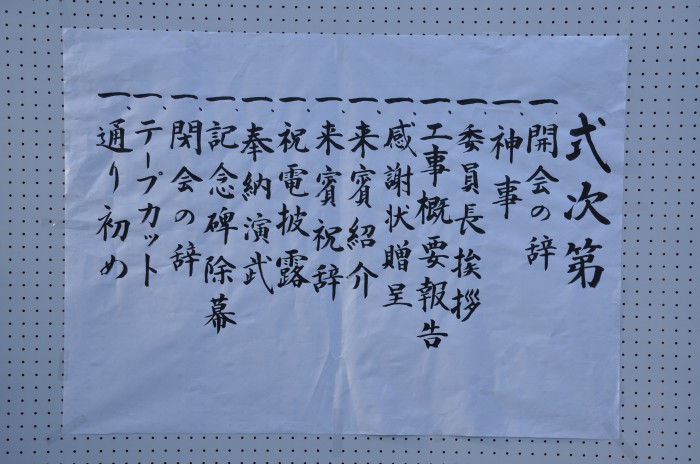 式次第
一、開会の辞
一、神事
一、委員長挨拶
一、工事概要報告
一、感謝状贈呈
一、来賓紹介
一、来賓祝辞
一、祝電披露
一、奉納演武
一、記念碑除幕
一、閉会の辞
一、テープカット
一、通り初め